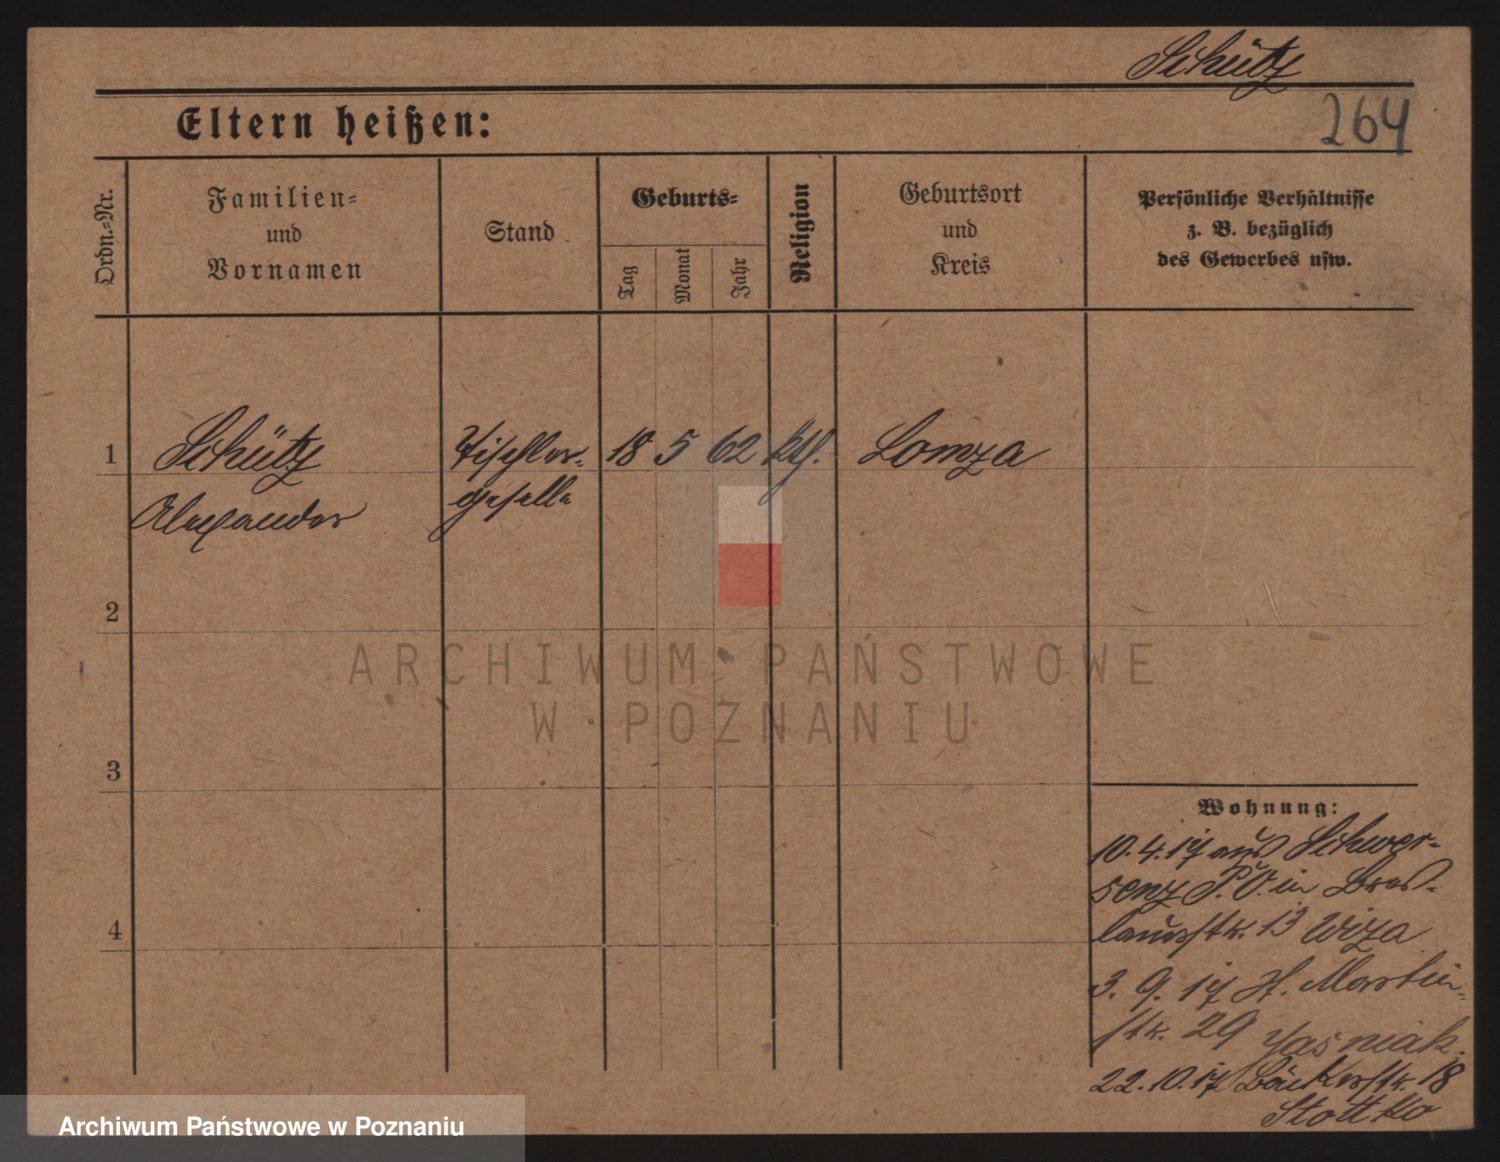 Schütz
264
Eltern heißen:
Ordn.-Nr.
Familien-
und
Vornamen
Stand
Geburts-
Tag
Monat
Jahr
Religion
Geburtsort
und
Kreis
Persönliche Verhältnisse
z. B. bezüglich
des Gewerbes usw.
1 Schütz Tischler- 18 5 62 kth. Lomza
Alexander geselle
2
3
4
Wohnung:
10.4.17 aus Schwer-
senz P. O. in Bres-
lauerstr. 13 Wiza
3. 9. 17 St. Martin-
str. 29 Jasniak.
22.10.17 Bäckerstr. 18
Stottko
ARCHIWUM PAŃSTWOWE
W POZNANIU
Archiwum Państwowe w Poznaniu